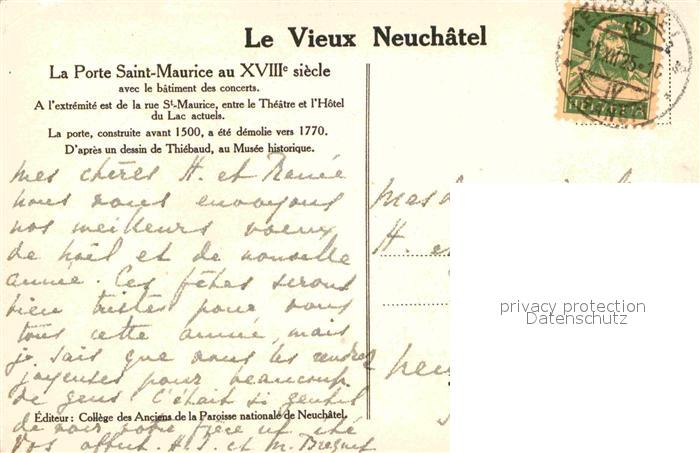 Le Vieux Neuchâtel
La Porte Saint-Maurice au XVIIIe siècle
avec le bâtiment des concerts.
A l'extrémité est de la rue St-Maurice, entre le Théâtre et l'Hôtel
du Lac actuels.
La porte, construite avant 1500, a été démolie vers 1770.
D'après un dessin de Thiébaud, au Musée historique.
mes chères H. et Renée
nous vous envoyons
nos meilleurs voeux
de noël et de nouvelle
année. Ces fêtes seront
bien tristes pour vous
tous cette année, mais
je sais que vous les rendrez
joyeuses pour beaucoup
de gens. C'était si gentil
Éditeur: Collège des Anciens de la Paroisse nationale de Neuchâtel.
de voir votre
Vos et M.
10
HELVETIA
H.
privacy protection
Datenschutz